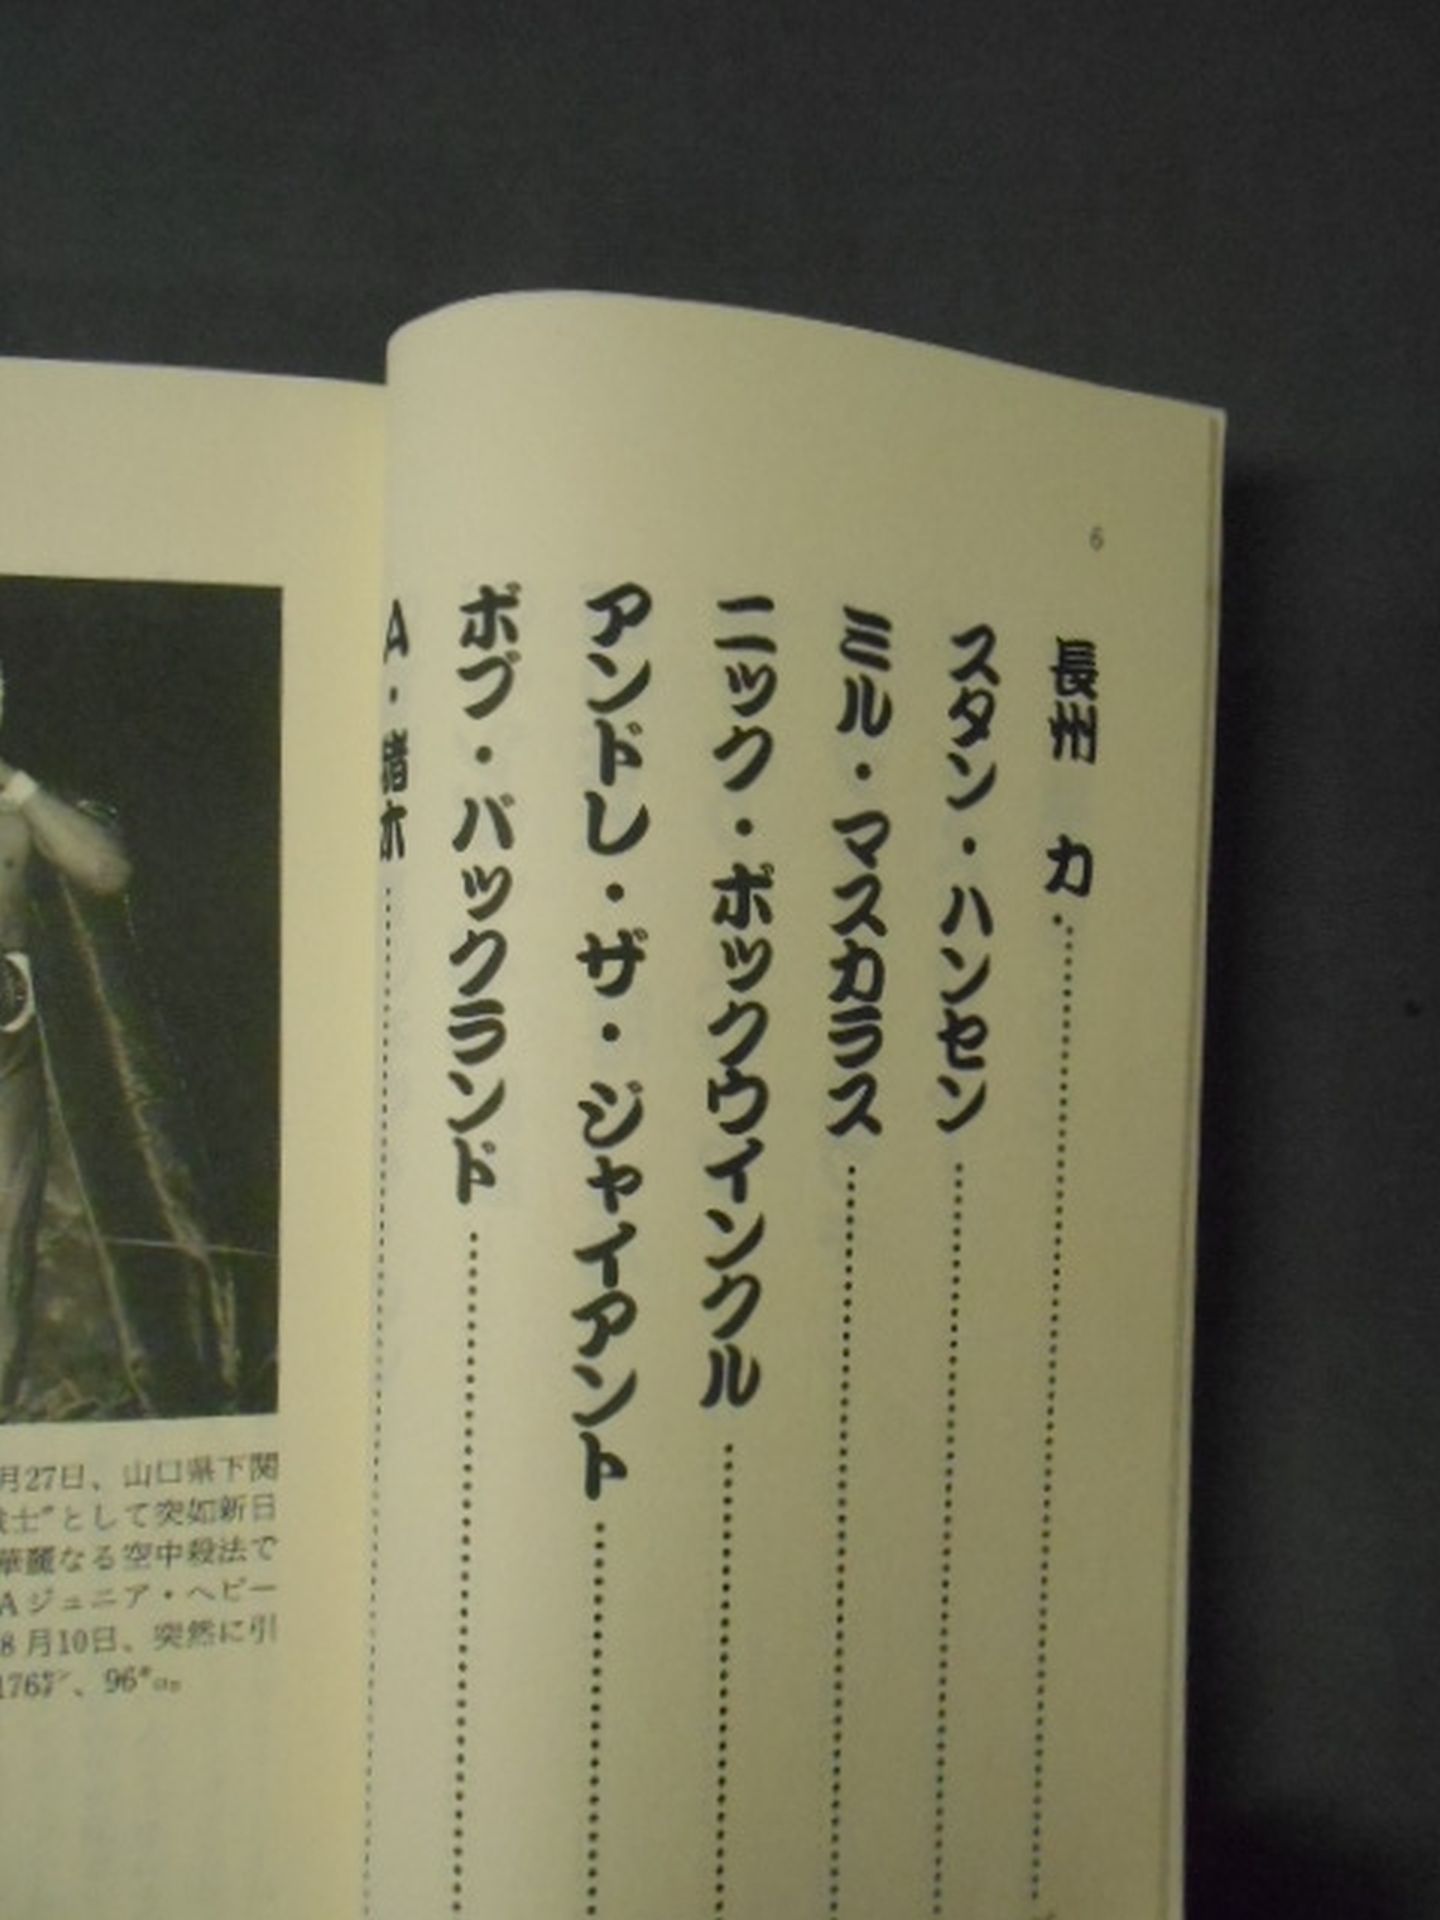 6
長州 力
スタン・ハンセン
ミル・マスカラス
ニック・ボックウインクル
アンドレ・ザ・ジャイアント
ボブ・バックランド
A・猪木
月27日、山口県下関
士”として突如新日
華麗なる空中殺法で
Aジュニア・ヘビー
8月10日、突然に引
176㌢、96㌔。